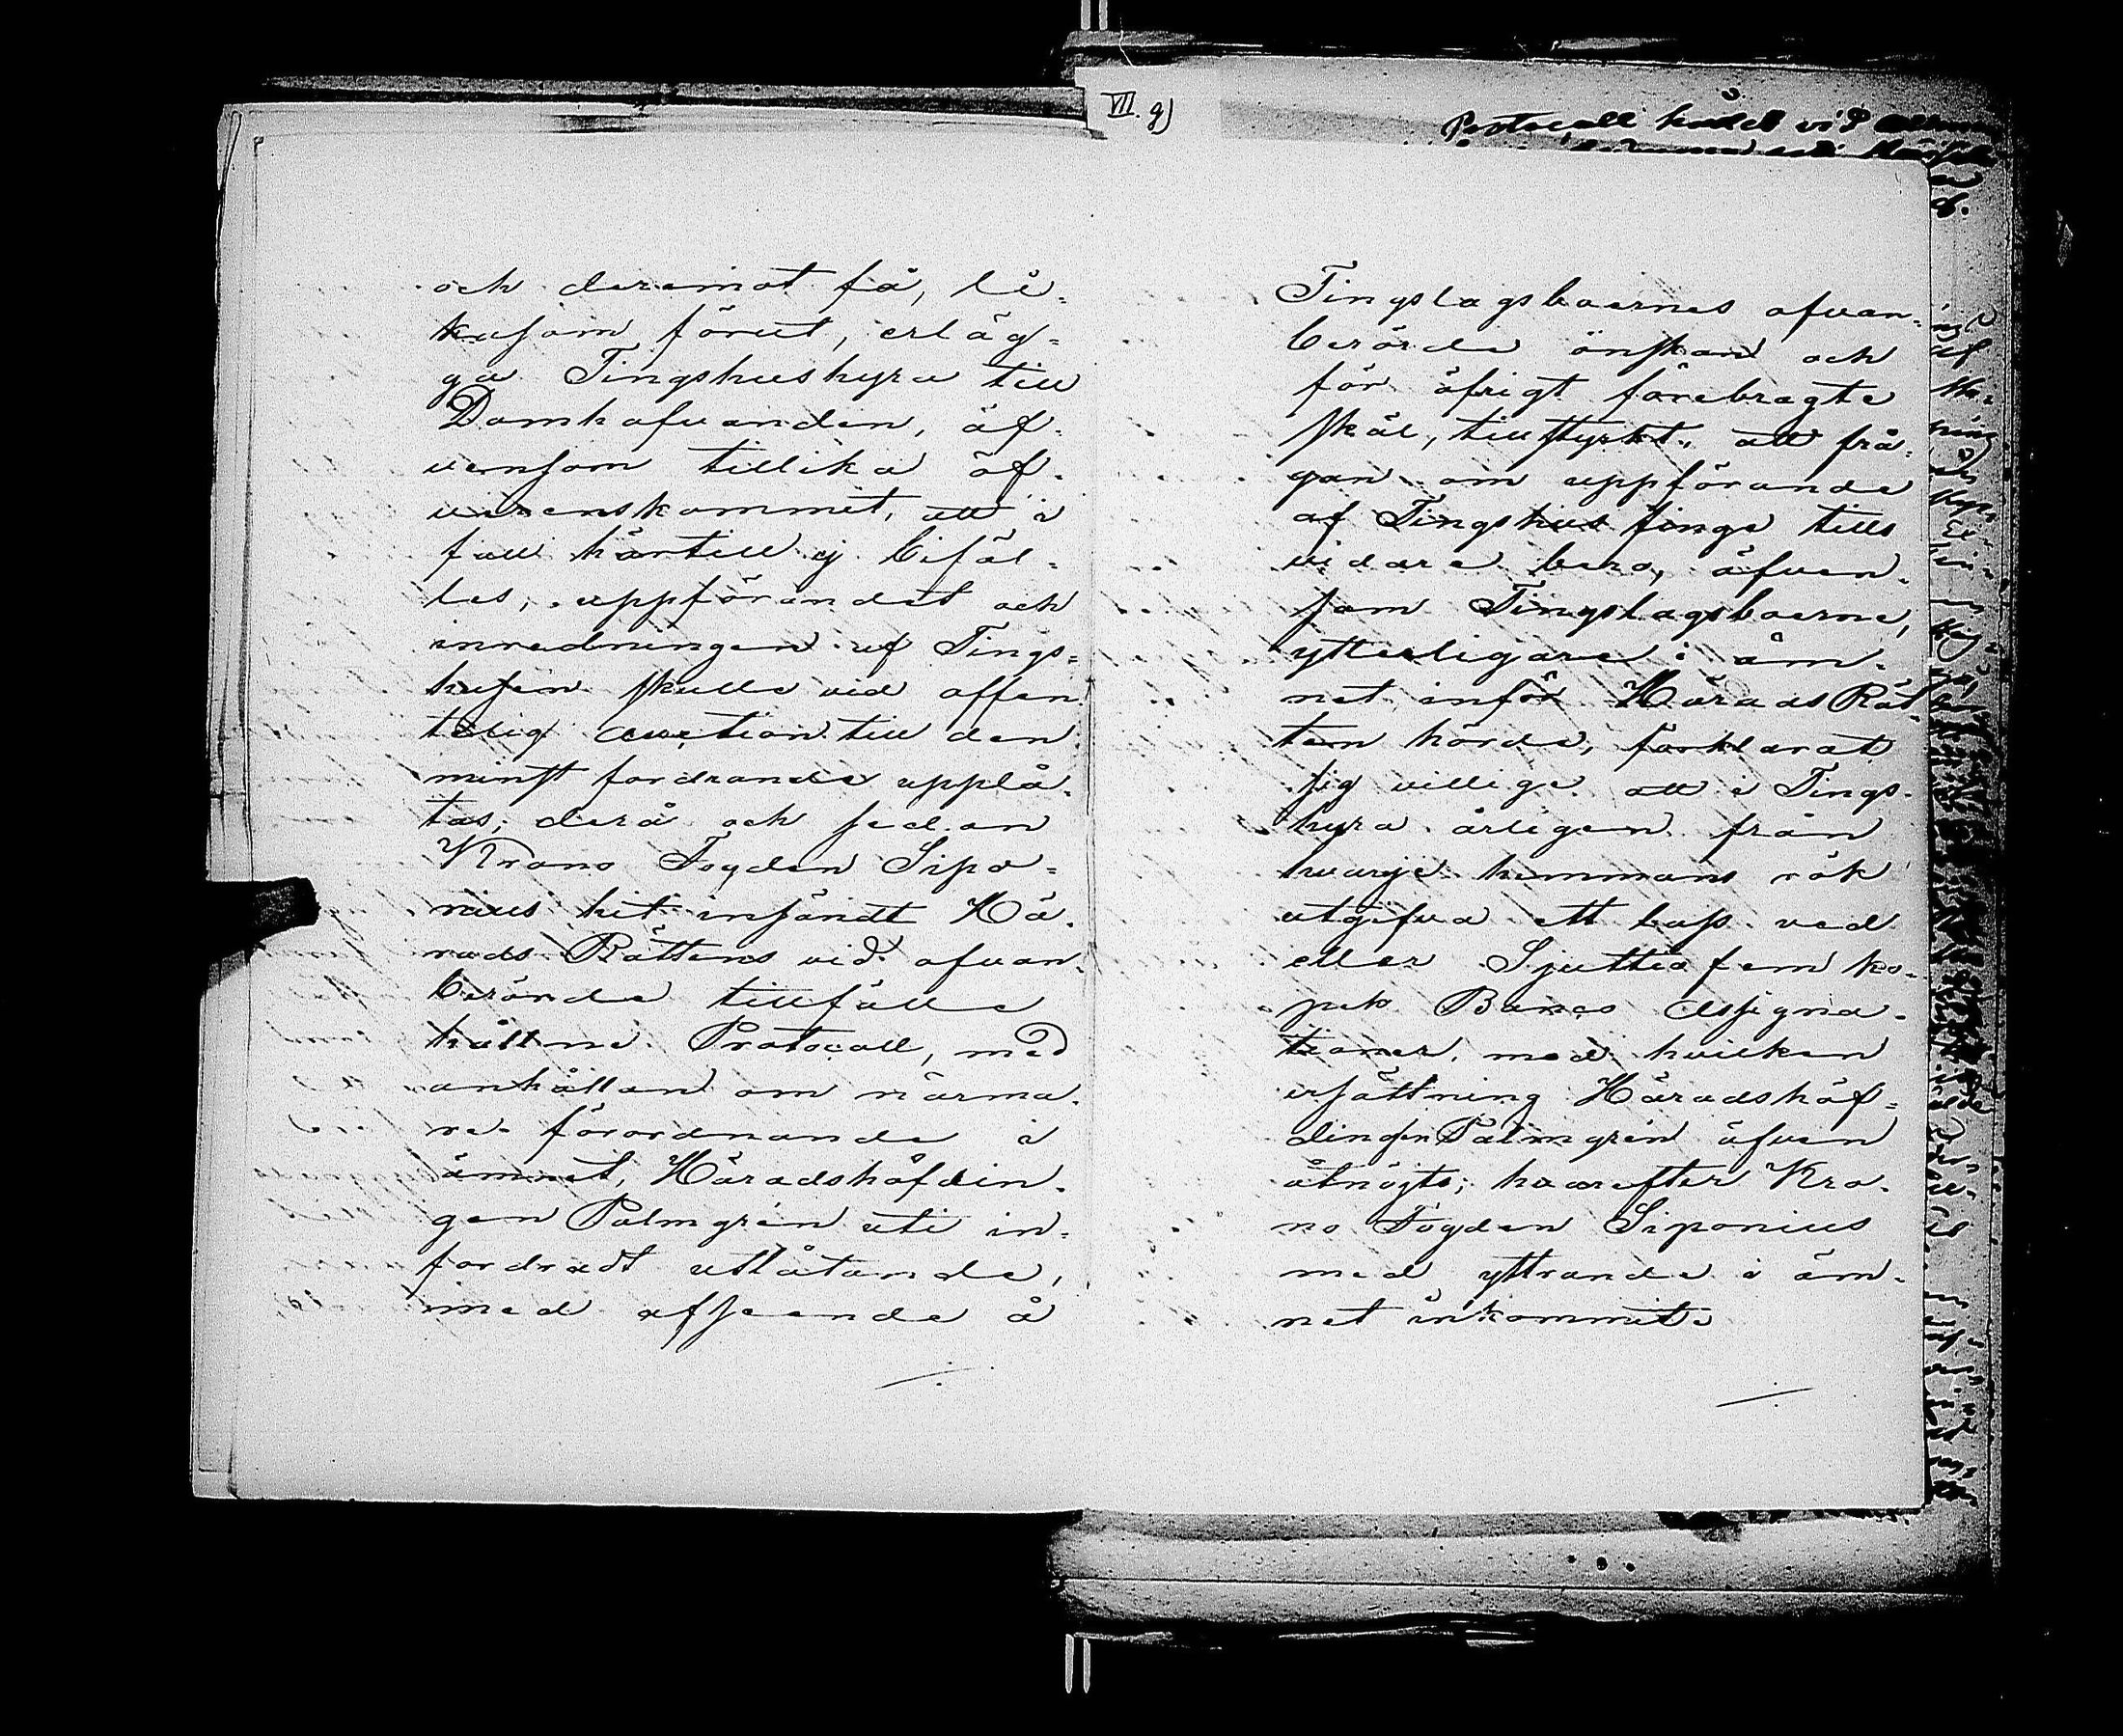 VII. g)
Protocoll hållet vid
och deremot få, li=
kasom förut, erläg=
ga Tingshushyra till
Domhafvanden, äf=
vensom tillika öf=
verenskommit, att i
fall härtill ej bifal=
les, uppförandet och
inredningen af Tings=
husen skulle vid offen
telig auction till den
minst fordrande upplå=
tas, derå och sedan
Krono Fogden Sipo=
nius hit insändt Hä=
rads Rättens vid ofvan=
berörde tillfälle
hållne Protocoll, med
anhållan om närma=
re förordnande i
ämnet, Häradshöfdin=
gen Palmgrén uti in=
fordradt utlåtande,
med afseende å
Tingslagsboernes ofvan=
berörde önskan och
för öfrigt förebragte
skäl, tillstyrkt, att frå=
gan om uppförande
af Tingshus finge tills
vidare bero, äfven=
som Tingslagsboerne,
ytterligare i äm=
net inför Härads Rät=
ten hörde, förklarat
sig villige att i Tings=
hyra årligen från
hvarje hemmans rök
utgifva ett lass ved
eller Sjuttio fem ko=
pek Banco Assigna=
tioner, med hvilken
ersättning Häradshöf=
dingen Palmgrén äfven
åtnögts; hvarefter Kro=
no Fogden Siponius
med yttrande i äm=
net inkommit.